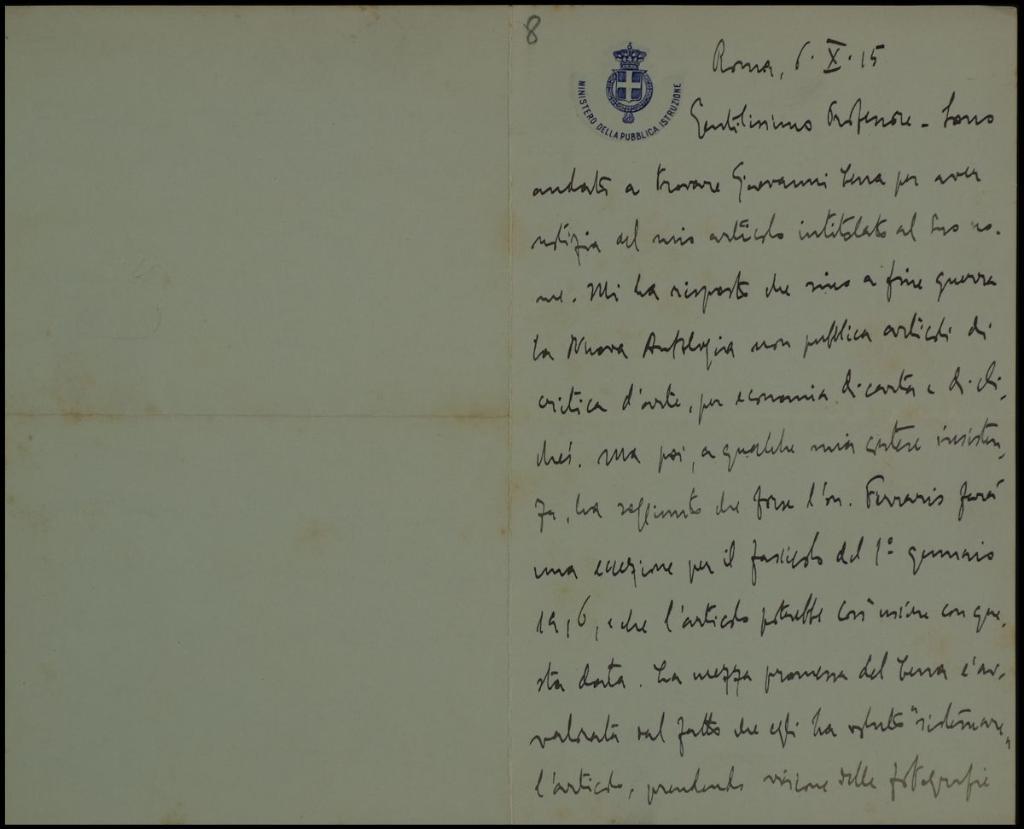 8
MINISTERO DELLA PUBBLICA ISTRUZIONE
Roma, 6. X. 15
Gentilissimo Professore - Sono
andato a trovare Giovanni Cena per aver
notizia del mio articolo intitolato al Suo no-
me. Mi ha risposto che sino a fine guerra
la Nuova Antologia non pubblica articoli di
critica d'arte, per economia di carta e di cli-
chés. Ma poi, a qualche mia cortese insisten-
za, ha soggiunto che forse l'on. Ferraris farà
una eccezione per il fascicolo del 1º gennaio
1916, e che l'articolo potrebbe così uscire con que-
sta data. La mezza promessa del Cena è av-
valorata dal fatto che egli ha voluto "sistemare"
l'articolo, prendendo visione delle fotografie